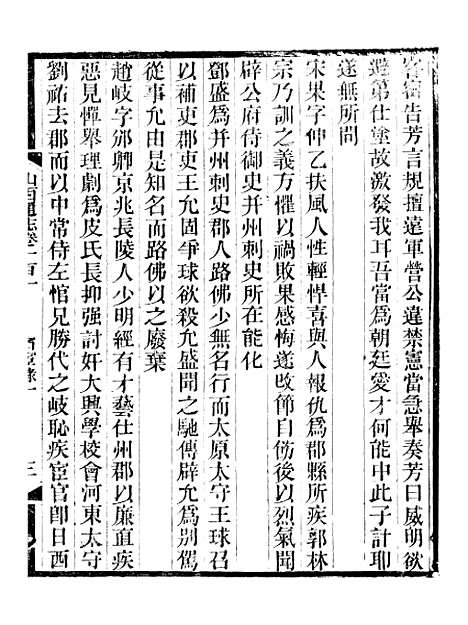 客密告芳言規擅遠軍營公違禁憲當急舉奏芳曰威明欲
避第仕塗故激發我耳吾當為朝廷愛才何能申此子計耶
遂無所問
宋果字仲乙扶風人性輕悍喜與人報仇為郡縣所疾郭林
宗乃訓之義方懼以禍敗果感悔遂改節自飭後以烈氣聞
辟公府侍御史并州刺史所在能化
鄧盛為并州刺史郡人路佛少無名行而太原太守王球召
以補吏郡吏王允固爭球欲殺允盛聞之馳傳辟允為別駕
從事允由是知名而路佛以之廢棄
趙岐字邠卿京兆長陵人少明經有才藝仕州郡以廉直疾
惡見憚舉理劇為皮氏長抑强討奸大興學校會河東太守
劉祐去郡而以中常侍左悺兄勝代之岐恥疾宦官即日西
山西通志卷一百一
宦績錄一
三